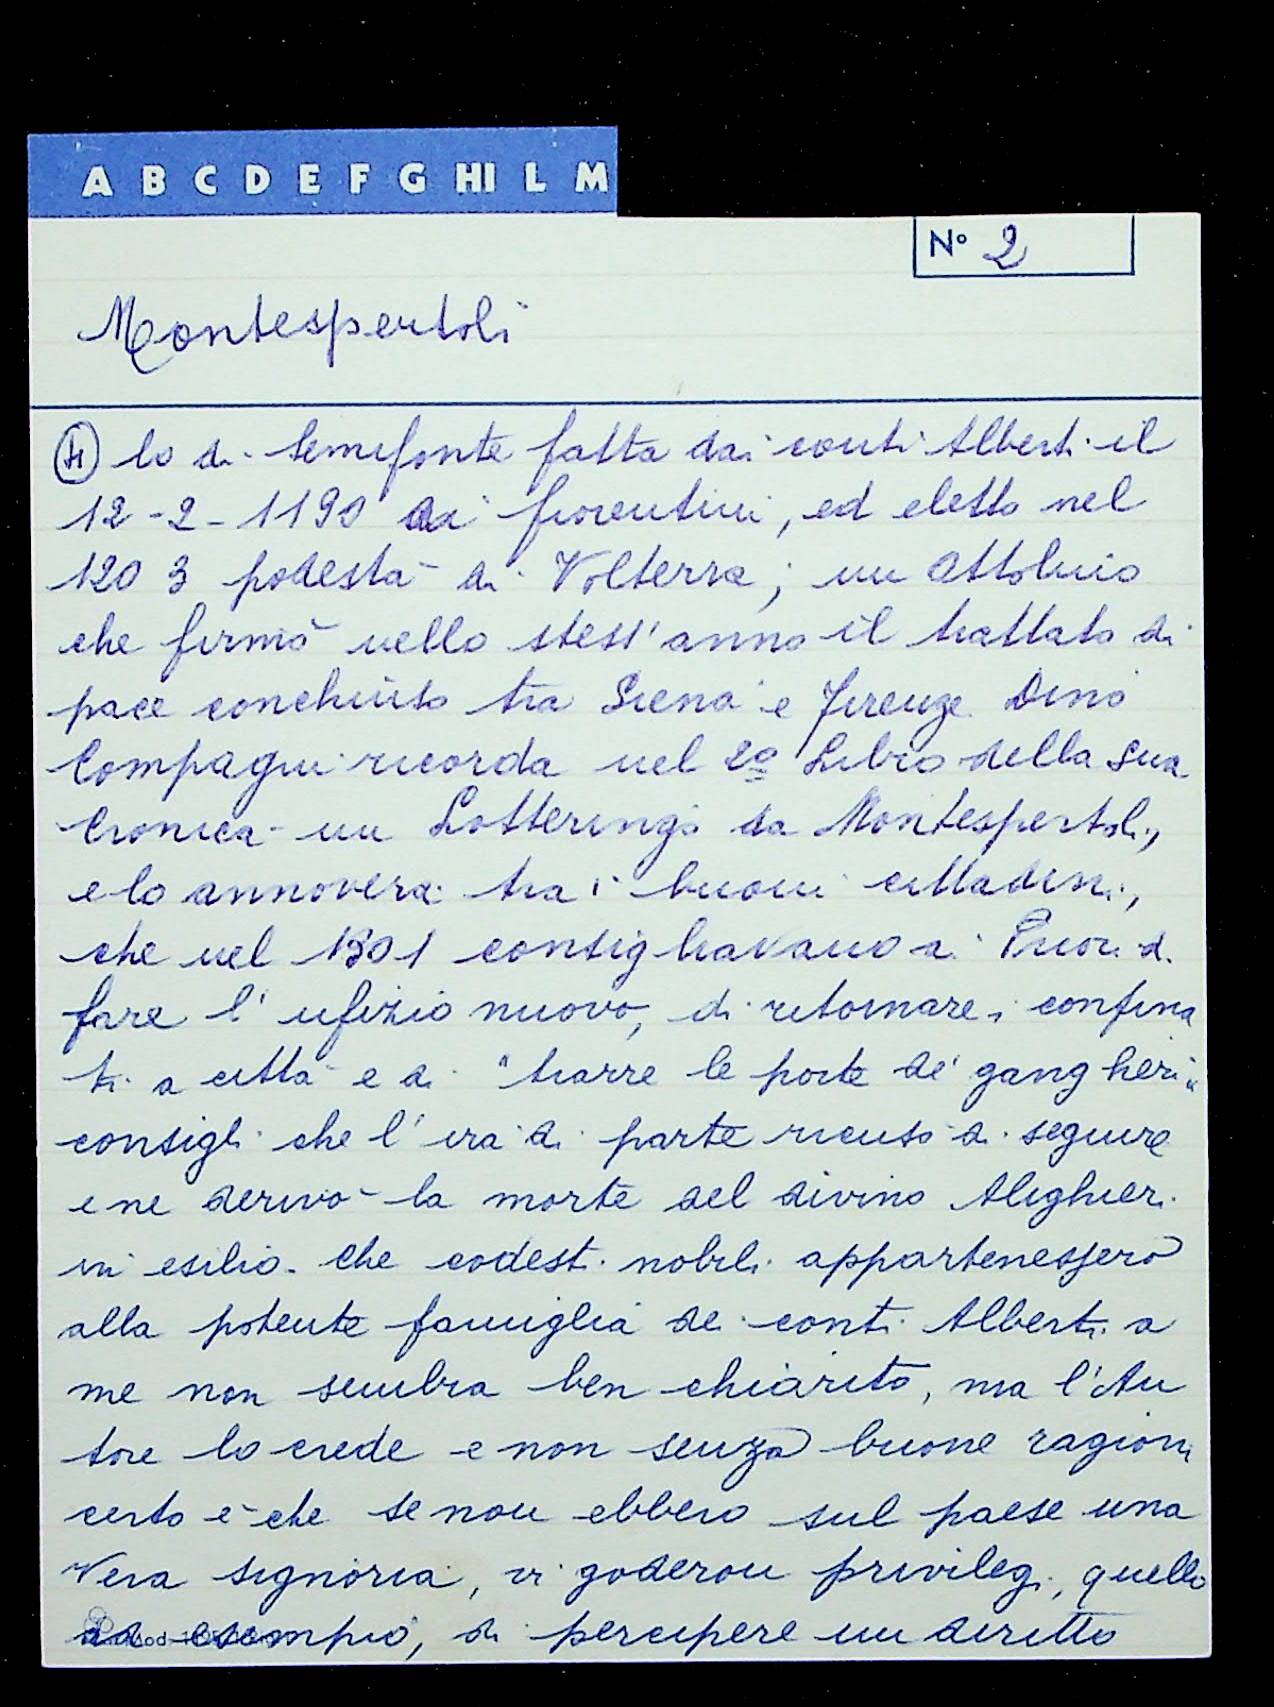 A B C D E F G HI L M
N° 2
Montespertoli
lo di Semifonte fatta dai conti Alberti il
12-2-1190 ai fiorentini, ed eletto nel
1203 podestà di Volterra; un Attolinio
che firmò nello stess'anno il trattato di
pace conchiuso tra Siena e Firenze Dino
Compagni ricorda nel 2º Libro della sua
Cronica un Lotteringo da Montespertoli,
e lo annovera tra i buoni cittadini,
che nel 1301 consigliavano ai Priori di
fare l'ufizio nuovo, di ritornare i confina
ti a città e di "trarre le porte de' gangheri"
consigli che l'ira di parte ricusò di seguire
e ne derivò la morte del divino Alighieri
in esilio. Che codesti nobili appartenessero
alla potente famiglia dei conti Alberti a
me non sembra ben chiarito, ma l'Au
tore lo crede e non senza buone ragioni
certo è che se non ebbero sul paese una
vera signoria, vi goderon privilegi, quello
ad esempio, di percipere un diritto